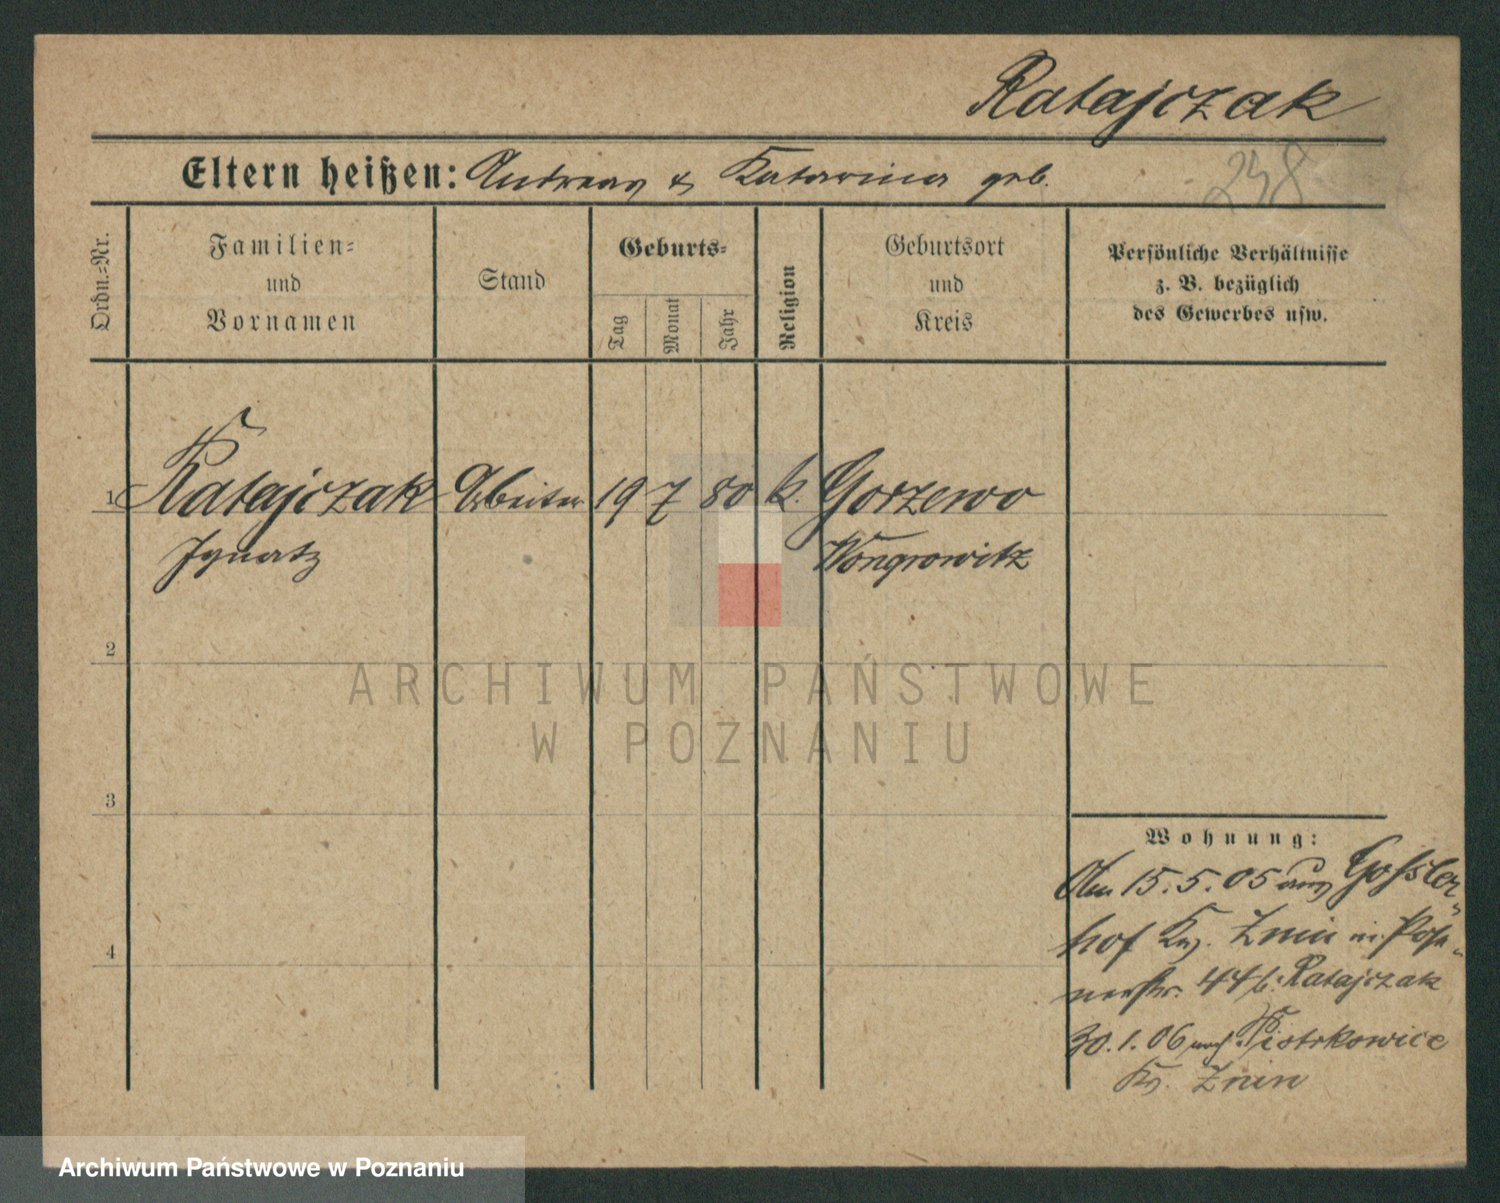 Ratajczak
Eltern heißen: Andreas & Katarina geb.
238
Ordn.-Nr.
Familien-
und
Vornamen
Stand
Geburts-
Tag
Monat
Jahr
Religion
Geburtsort
und
Kreis
Persönliche Verhältnisse
z. B. bezüglich
des Gewerbes usw.
1 Ratajczak Arbeiter 19 7 80 k. Gorzewo
Ignatz Wongrowitz
2
3
4
Wohnung:
Am 15.5.05 aus Gossler-
hof Krs. Znin in Pose-
nerstr. 44 b. Ratajczak
30.1.06 nach Piotrkowice
Krs. Znin
ARCHIWUM PAŃSTWOWE
W POZNANIU
Archiwum Państwowe w Poznaniu